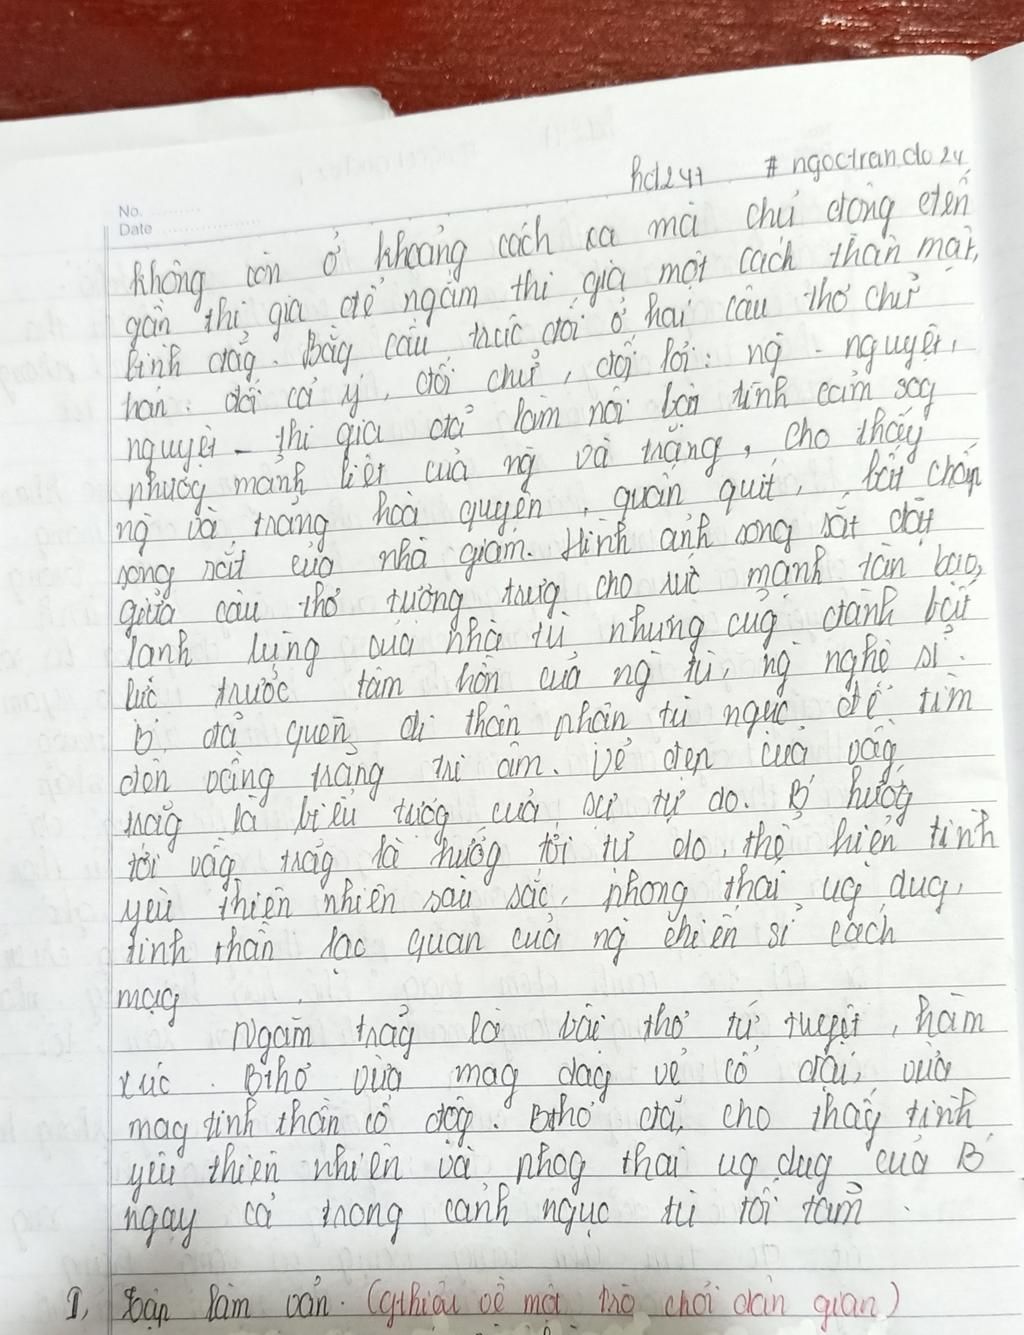 hd247 #ngoctran.do24
No.
Date
không còn ở khoảng cách xa mà chủ động đến
gần thi gia để ngắm thi gia một cách thân mật,
bình đẳg. Bằg cấu trúc đối ở hai câu thơ chữ
hán: đối cả ý, đối chữ, đối lời: ng - nguyệt,
nguyệt - thi gia đã làm nổi bật tình cảm sog
phươg mãnh liệt của ng và trăng, cho thấy
ng và trăng hòa quyện, quấn quít, bất chấp
song sắt của nhà giam. Hình ảnh song sắt đặt
giữa câu thơ tượng trưg cho sức mạnh tàn bạo,
lạnh lùng của nhà tù nhưng cug đành bất
lực trước tâm hồn của ng tù, ng nghệ sĩ.
B đã quên đi thân phận tù ngục để tìm
đến vầng trăng tri âm. Vẻ đẹp của vầg
trăg là biểu tượg của sự tự do. B hướg
tới vầg trăg là hướg tới tự do, thể hiện tình
yêu thiên nhiên sâu sắc, phong thái ug dug,
tinh thần lạc quan của ng chiến sĩ cách
mạg
Ngắm trăg là bài thơ tứ tuyệt, hàm
xúc. Bthơ vừa mag dág vẻ cổ đại, vừa
mag tinh thần cổ độg. Bthơ đã cho thấy tình
yêu thiên nhiên và phog thái ug dug của B
ngay cả trong cảnh ngục tù tối tăm.
I, Tập làm văn. (gthiệu về một trò chơi dân gian)